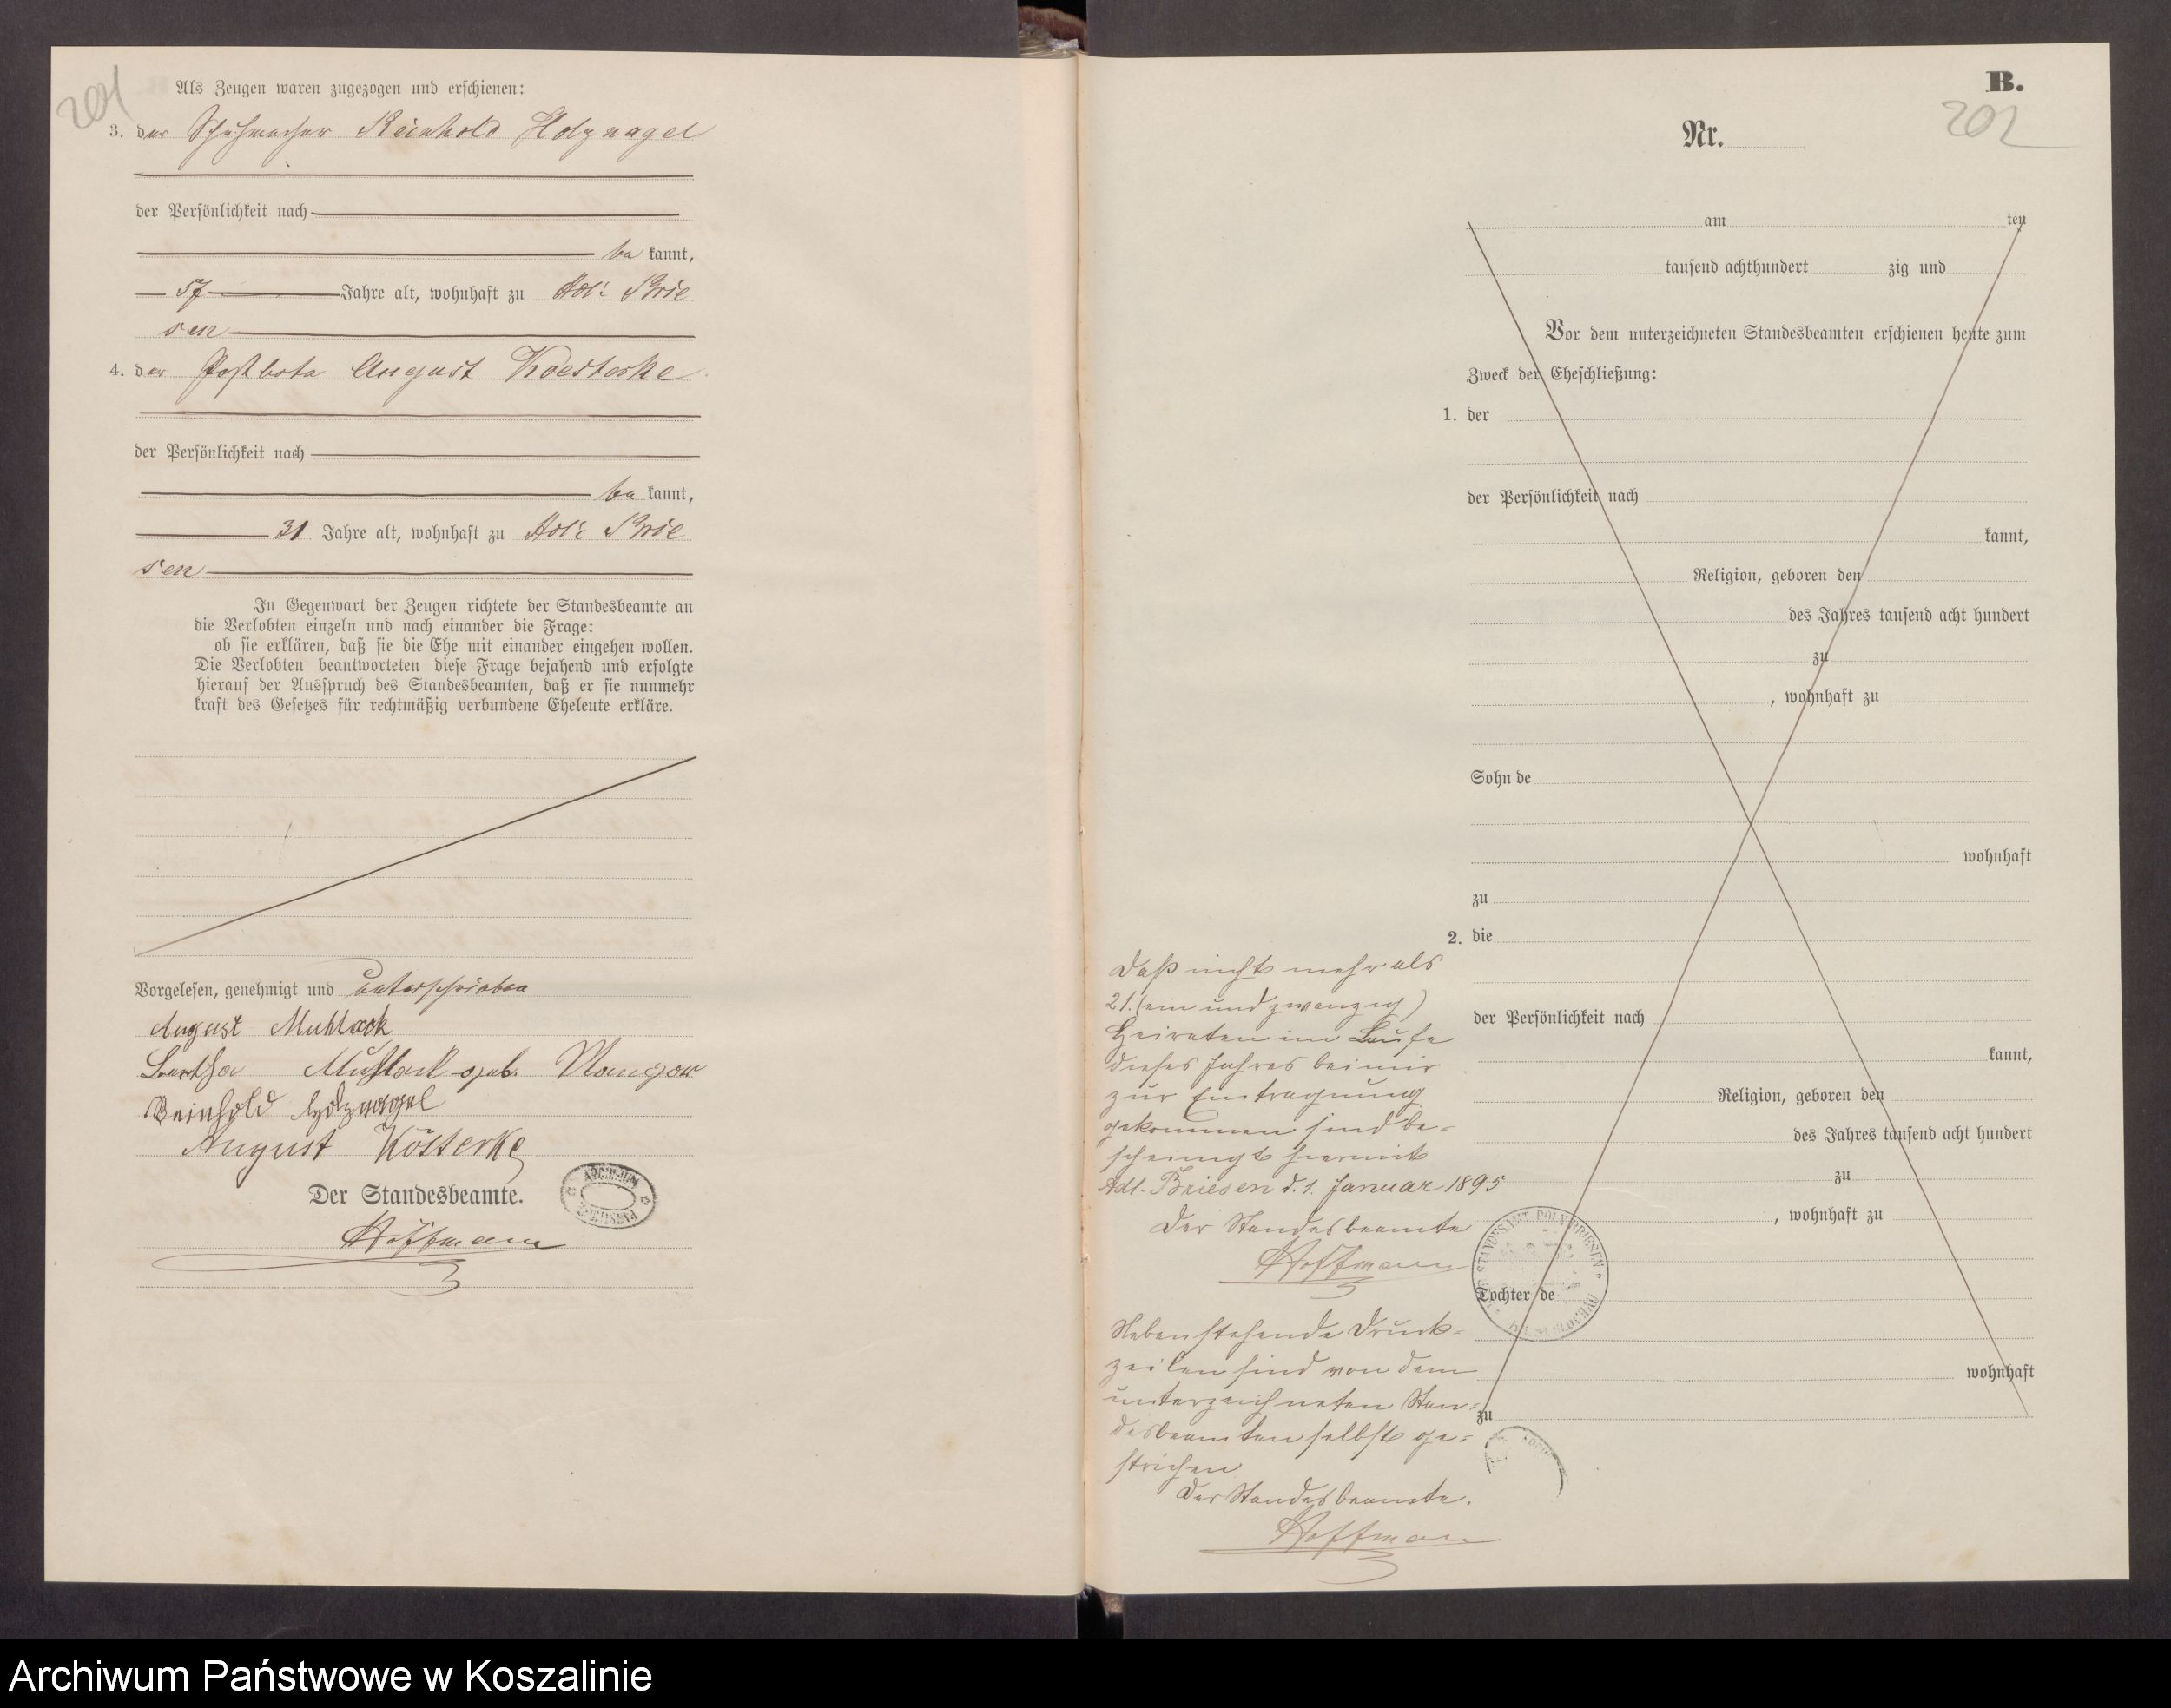 201
Als Zeugen waren zugezogen und erschienen:
3. der Schuhmacher Reinhold Holznagel
der Persönlichkeit nach
be kannt,
57 Jahre alt, wohnhaft zu Adl: Brie
sen
4. der Postbote August Koesterke
der Persönlichkeit nach
be kannt,
31 Jahre alt, wohnhaft zu Adl: Brie
sen
In Gegenwart der Zeugen richtete der Standesbeamte an
die Verlobten einzeln und nach einander die Frage:
ob sie erklären, daß sie die Ehe mit einander eingehen wollen.
Die Verlobten beantworteten diese Frage bejahend und erfolgte
hierauf der Ausspruch des Standesbeamten, daß er sie nunmehr
kraft des Gesetzes für rechtmäßig verbundene Eheleute erkläre.
Vorgelesen, genehmigt und unterschrieben
August Muhlack
Bertha Muhlack geb. Mangow
Reinhold Holznagel
August Kösterke
Der Standesbeamte.
ARCHIWUM
Hoffmann
B.
202
Nr.
am ten
tausend achthundert zig und
Vor dem unterzeichneten Standesbeamten erschienen heute zum
Zweck der Eheschließung:
1. der
der Persönlichkeit nach
kannt,
Religion, geboren den
des Jahres tausend acht hundert
zu
, wohnhaft zu
Sohn de
wohnhaft
zu
2. die
der Persönlichkeit nach
kannt,
Religion, geboren den
des Jahres tausend acht hundert
zu
, wohnhaft zu
Tochter de
wohnhaft
zu
Daß nicht mehr als
21. (ein und zwanzig)
Heiraten im Laufe
dieses Jahres bei mir
zur Eintragung
gekommen sind be-
scheinigt hiermit
Adl. Briesen d. 1. Januar 1895
Der Standesbeamte
Hoffmann
Nebenstehende Druck-
zeilen sind von dem
unterzeichneten Stan-
desbeamten selbst ge-
strichen
Der Standesbeamte.
Hoffmann
Archiwum Państwowe w Koszalinie